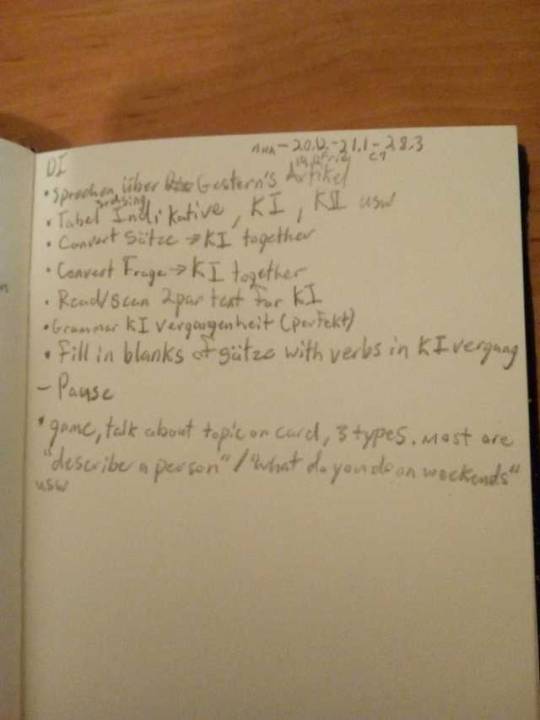 DI
- 20.12 - 21.1 - 28.3
• Sprechen über Gestern's Artikel
• Tabel Indikative, KI, KII usw
• Convert Sätze → KI together
• Convert Frage → KI together
• Read/scan 2 par text for KI
• Grammar KI vergangenheit (perfekt)
• Fill in blanks of sätze with verbs in KI vergang
- Pause
• game, talk about topic on card, 3 types. Most are
"describe a person" / "what do you do on weekends"
usw